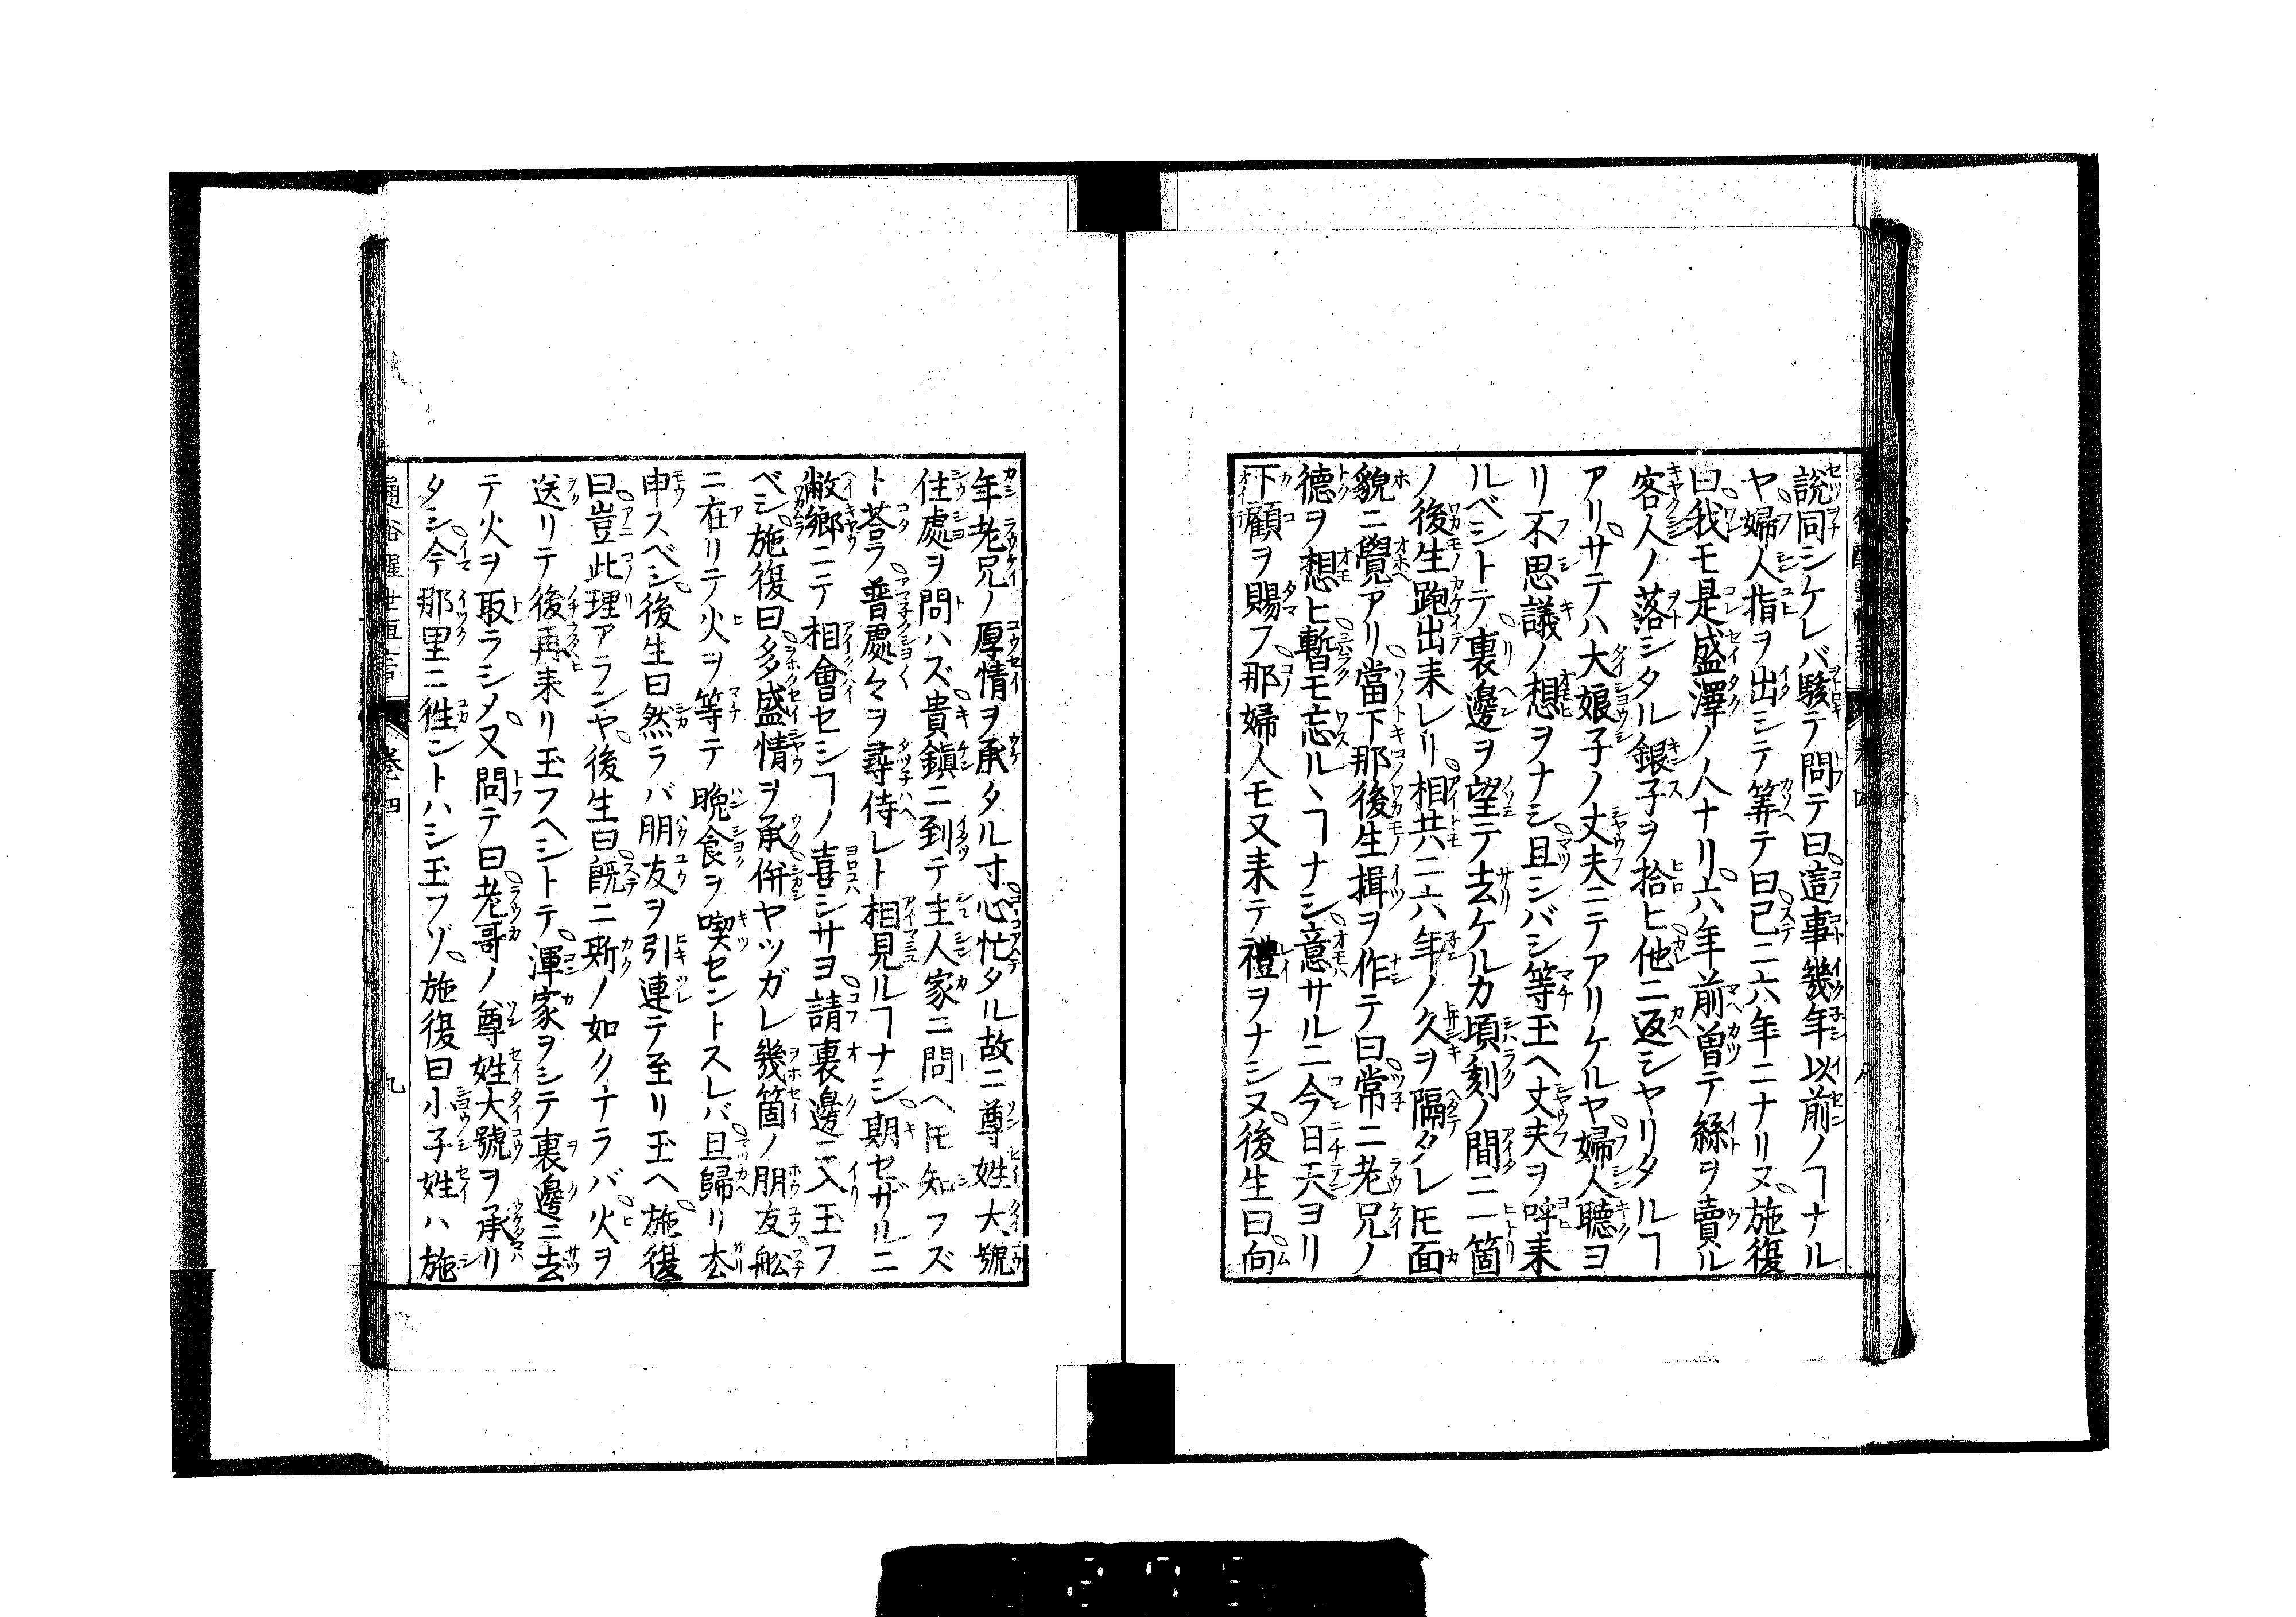 說同シケレバ駭テ問テ曰這事幾年以前ノヿナル
ヤ婦人指ヲ出シテ筭テ曰已ニ六年ニナリヌ施復
曰我モ是盛澤ノ人ナリ六年前曽テ絲ヲ賣ル
客人ノ落シタル銀子ヲ拾ヒ他ニ返シヤリタルヿ
アリサテハ大娘子ノ丈夫ニテアリケルヤ婦人聽ヨ
リ不思議ノ想ヲナシ且シバシ等玉ヘ丈夫ヲ呼来
ルベシトテ裏邊ヲ望テ去ケルカ頃刻ノ間ニ一箇
ノ後生跑出来レリ相共ニ六年ノ久ヲ隔タレ𪜈面
貌ニ覺アリ當下那後生揖ヲ作テ曰常ニ老兄ノ
德ヲ想ヒ暫モ忘ルヽヿナシ意サルニ今日天ヨリ
下顧ヲ賜フ那婦人モ又来テ禮ヲナシヌ後生曰向
年老兄ノ厚情ヲ承タル寸心忙タル故ニ尊姓大號
住處ヲ問ハズ貴鎮ニ到テ主人家ニ問ヘ𪜈知フズ
ト荅ラ普處々ヲ尋侍レト相見ルヿナシ期セザルニ
敝鄉ニテ相會セシヿノ喜シサヨ請裏邊ニ入玉フ
ベシ施復曰多盛情ヲ承併ヤツガレ幾箇ノ朋友舩
ニ在リテ火ヲ等テ晩食ヲ喫セントスレバ旦歸リ去
申スベシ後生曰然ラバ朋友ヲ引連テ至リ玉ヘ施復
曰豈此理アランヤ後生曰既ニ斯ノ如クナラバ火ヲ
送リテ後再来リ玉フヘシトテ渾家ヲシテ裏邊ニ去
テ火ヲ取ラシメ又問テ曰老哥ノ尊姓大號ヲ承リ
タシ今那里ニ徃ントハシ玉フゾ施復曰小子姓ハ施
通俗醒世恒言 卷四 九